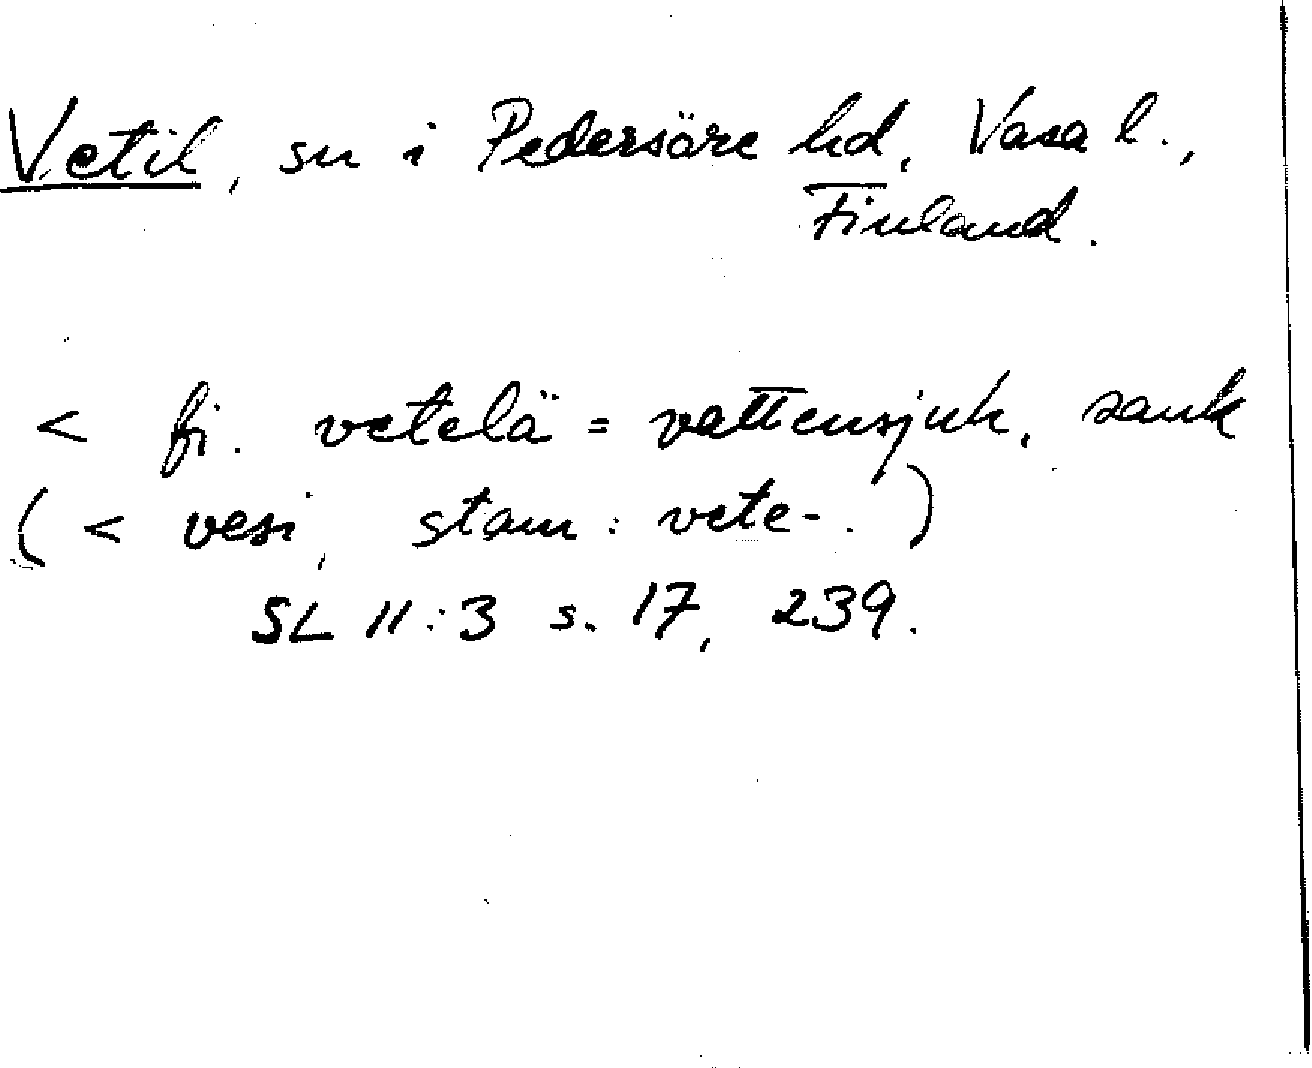 Vetil, sn i Pedersöre hd, Vasa l.,
Finland.
< fi. vetelä = vattensjuk, sank
( < vesi, stam : vete-. )
SL II:3 s. 17, 239.